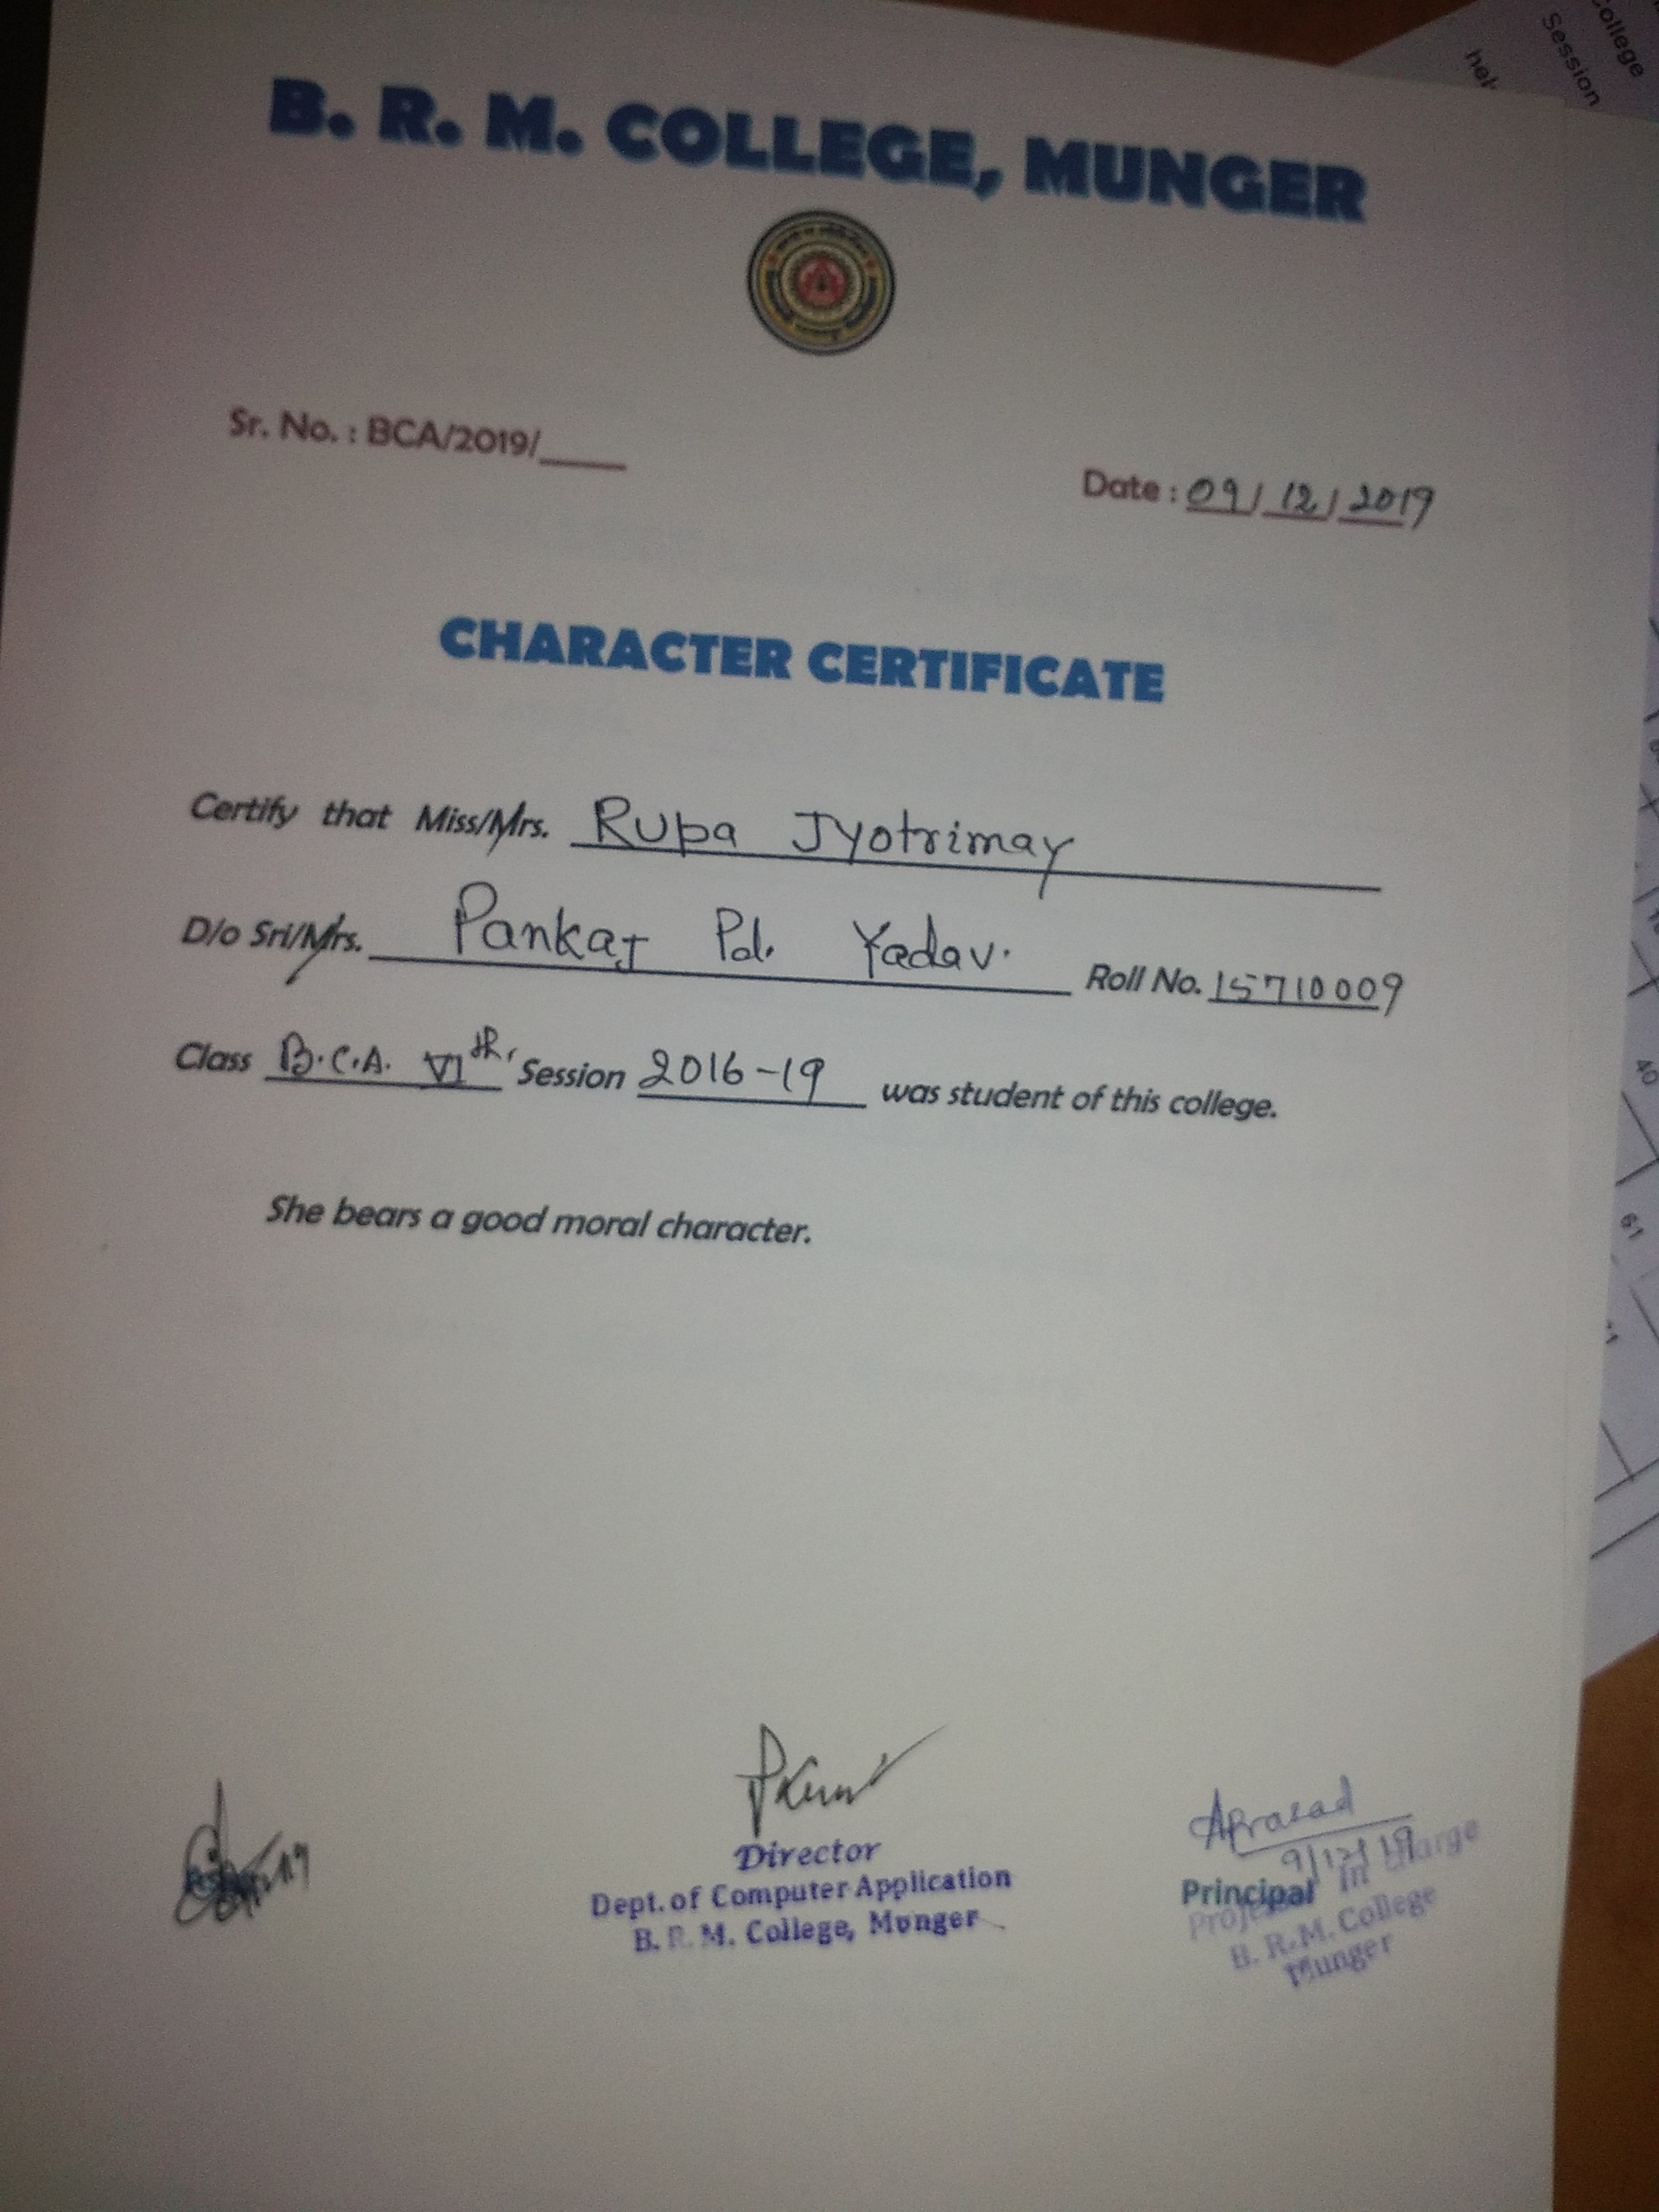 B. R. M. COLLEGE, MUNGER
Sr. No. : BCA/2019/____
Date : 09/12/2019
CHARACTER CERTIFICATE
Certify that Miss/Mrs. Rupa Jyotrimay
D/o Sri/Mrs. Pankaj Pd. Yadav. Roll No. 15710009
Class B.C.A. VIth, Session 2016-19 was student of this college.
She bears a good moral character.
Director
Dept. of Computer Application
B. R. M. College, Munger
APrasad
9/12/19
Principal In Charge
B. R. M. College
Munger
College
Session
40
61